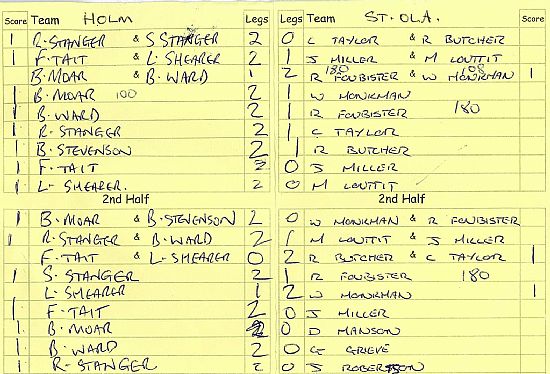 Score Team HOLM Legs Legs Team ST. OLA. Score
1 R. STANGER & S STANGER 2 0 C TAYLOR & R BUTCHER
1 F. TAIT & L. SHEARER 2 1 J MILLER & M LOUTTIT
180 108
B. MOAR & B. WARD 1 2 R FOUBISTER & W MONKMAN 1
1 B. MOAR 100 2 1 W MONKMAN
1 B. WARD 2 1 R FOUBISTER 180
1 R. STANGER 2 1 C TAYLOR
1 B. STEVENSON 2 1 R BUTCHER
1 F. TAIT 2 0 J MILLER
1 L. SHEARER. 2 0 M LOUTTIT
2nd Half 2nd Half
1 B. MOAR & B. STEVENSON 2 0 W MONKMAN & R FOUBISTER
1 R. STANGER & B. WARD 2 1 M LOUTTIT & J MILLER
F. TAIT & L. SHEARER 0 2 R BUTCHER & C TAYLOR 1
1 S. STANGER 2 1 R FOUBISTER 180
L. SHEARER 1 2 W MONKMAN 1
1 F. TAIT 2 0 J MILLER
1 B. MOAR 2 0 D MANSON
1 B. WARD 2 0 G GRIEVE
1 R. STANGER 2 0 J ROBERTSON